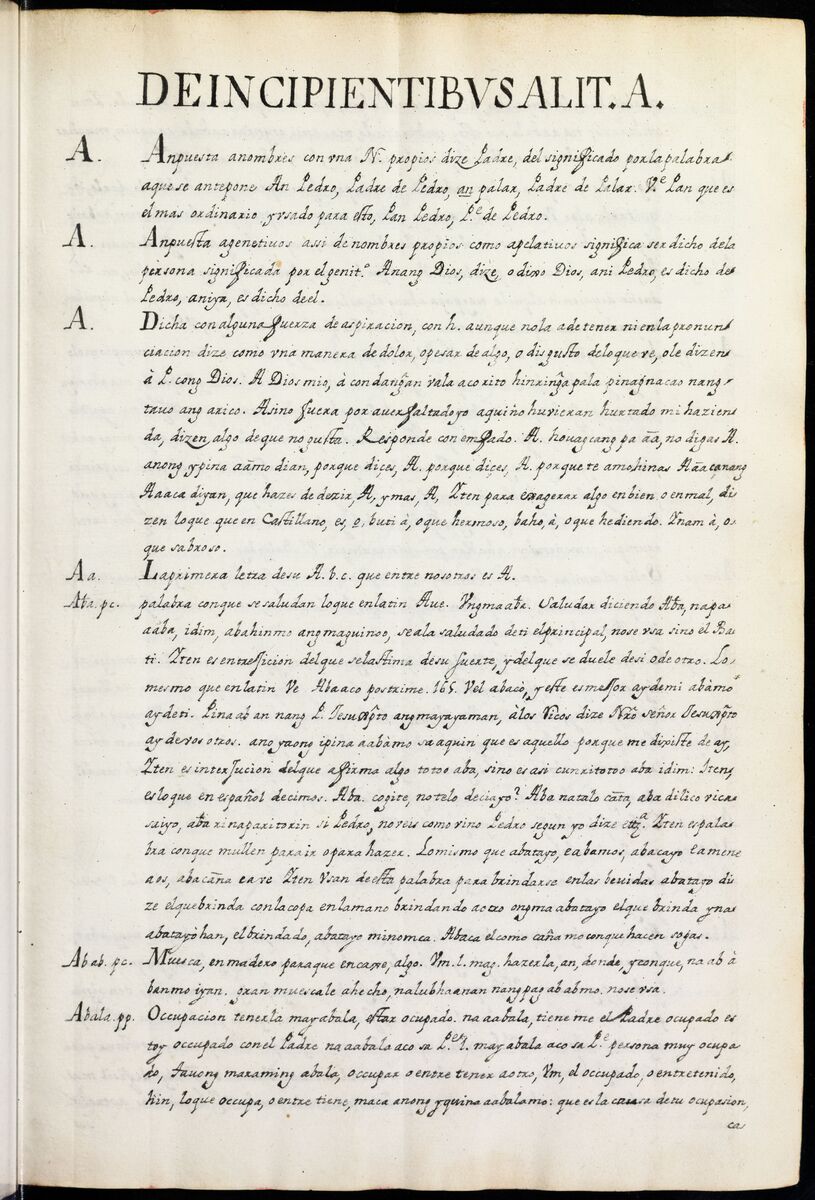 DE INCIPIENTIBVS A LIT. A.
A. Anpuesta anombres con vna N. propios dize Padre, del significado por la palabra
aque se antepone An Pedro, Padre de Pedro, an pilar, Padre de Pilar. Vᵉ Pan que es
el mas ordinario y vsado para esto, Pan Pedro, P.ᵉ de Pedro.
A. Anpuesta agenetivos assi de nombres propios como apelativos significa ser dicho dela
persona significada por el genit.º Anang Dios, dize, o dixo Dios, ani Pedro, es dicho de
Pedro, aniya, es dicho de el.
A. Dicha con alguna fuerza de aspiracion, con h. aunque no la a de tener ni en la pronun
ciacion dize como vna manera de dolor, o pesar de algo, o disgusto de lo que ve, o le dizen
à P. cong Dios. A Dios mio, à con dangan vala aco rito hininga pala pinagnacao nang
tauo ang arico. A si no fuera por auer faltado yo aqui no huvieran hurtado mi hazien
da, dizen, algo de que no gusta. Responde con enfado. A. houagcang pa āā, no digas A.
anong ypina aāmo dian, porque dices, A. porque dices, A. porque te amohinas Aāa canang
Aaaca diyan, que hazes de dezir, A, y mas, A, Yten para exagerar algo en bien o en mal, di
zen lo que que en Castillano, es, o, buti à, o que hermoso, baho, à, o que hediendo. Ynam à, o
que sabroso.
Aa. La primera letra de su A. b. c. que entre nosotros es A.
Aba. pc. palabra con que se saludan lo que en latin Aue. Vngma aba. Saludar diciendo Aba, napa
aaba, idim, abahinmo ang maguinoo, se ala saludado de ti el principal, no se vsa sino el Ba
ti. Yten es entresicion del que se lastima de su suerte, y del que se duele de si o de otro. Lo
mesmo que en latin Ve Aba aco postrime. 165. Vel abacò, y este es messor ay de mi abàmo
ay de ti. Pina ab an nang P. Jesuxpto ang mayayaman, à los Ricos dize Nrō Señor Jesuxpto
ay de vos otros. ano yaong ipina aabàmo sa aquin que es aquello porque me dixiste de ay,
Yten es interjucion del que afirma algo totoo aba, sino es asi cun ritotoo aba idim: Iten,
es lo que en español decimos. Aba. cogite, no te lo decia yo? Aba natalo cata, aba dili co vica
sa iyo, aba rinaparitorin si Pedro, no veis como vino Pedro segun yo dize Yten es pala
bra con que mullen para ir o para hazer. Lo mismo que abatayo, ea bamos, abacayo ea mene
aos, abacāna ea ve Yten Vsan de esta palabra para brindarse en las bevidas abatayo di
ze el que brinda con la copa en la mano brindando a otro ongma abatayo el que brinda yna
abatayòhan, el brindado, abatayo minomca. Abaca el como caña mo con que hacen sogas.
Abab. pc. Muesca, en madero para que encaxe, algo. Vm. l. mag. hazerla, an, donde, y conque, na ab à
banmo iyan. gran muesca le ahecho, nalubhaanan nang pag ab abmo. no se vsa.
Abala. pp. Occupacion tenerla may abala, estar ocupado. na aabala, tiene me el Padre ocupado es
toy occupado con el Padre na aabala aco sa P.ᵉ l. may abala aco sa P.ᵉ persona muy ocupa
do, tauong maraming abala, occupar o entre tener a otro, Vm, el occupado, o entretenido,
hin, lo que occupa, o entre tiene, maca anong yquina aabala mo: que es la causa de tu ocupasion,
ca